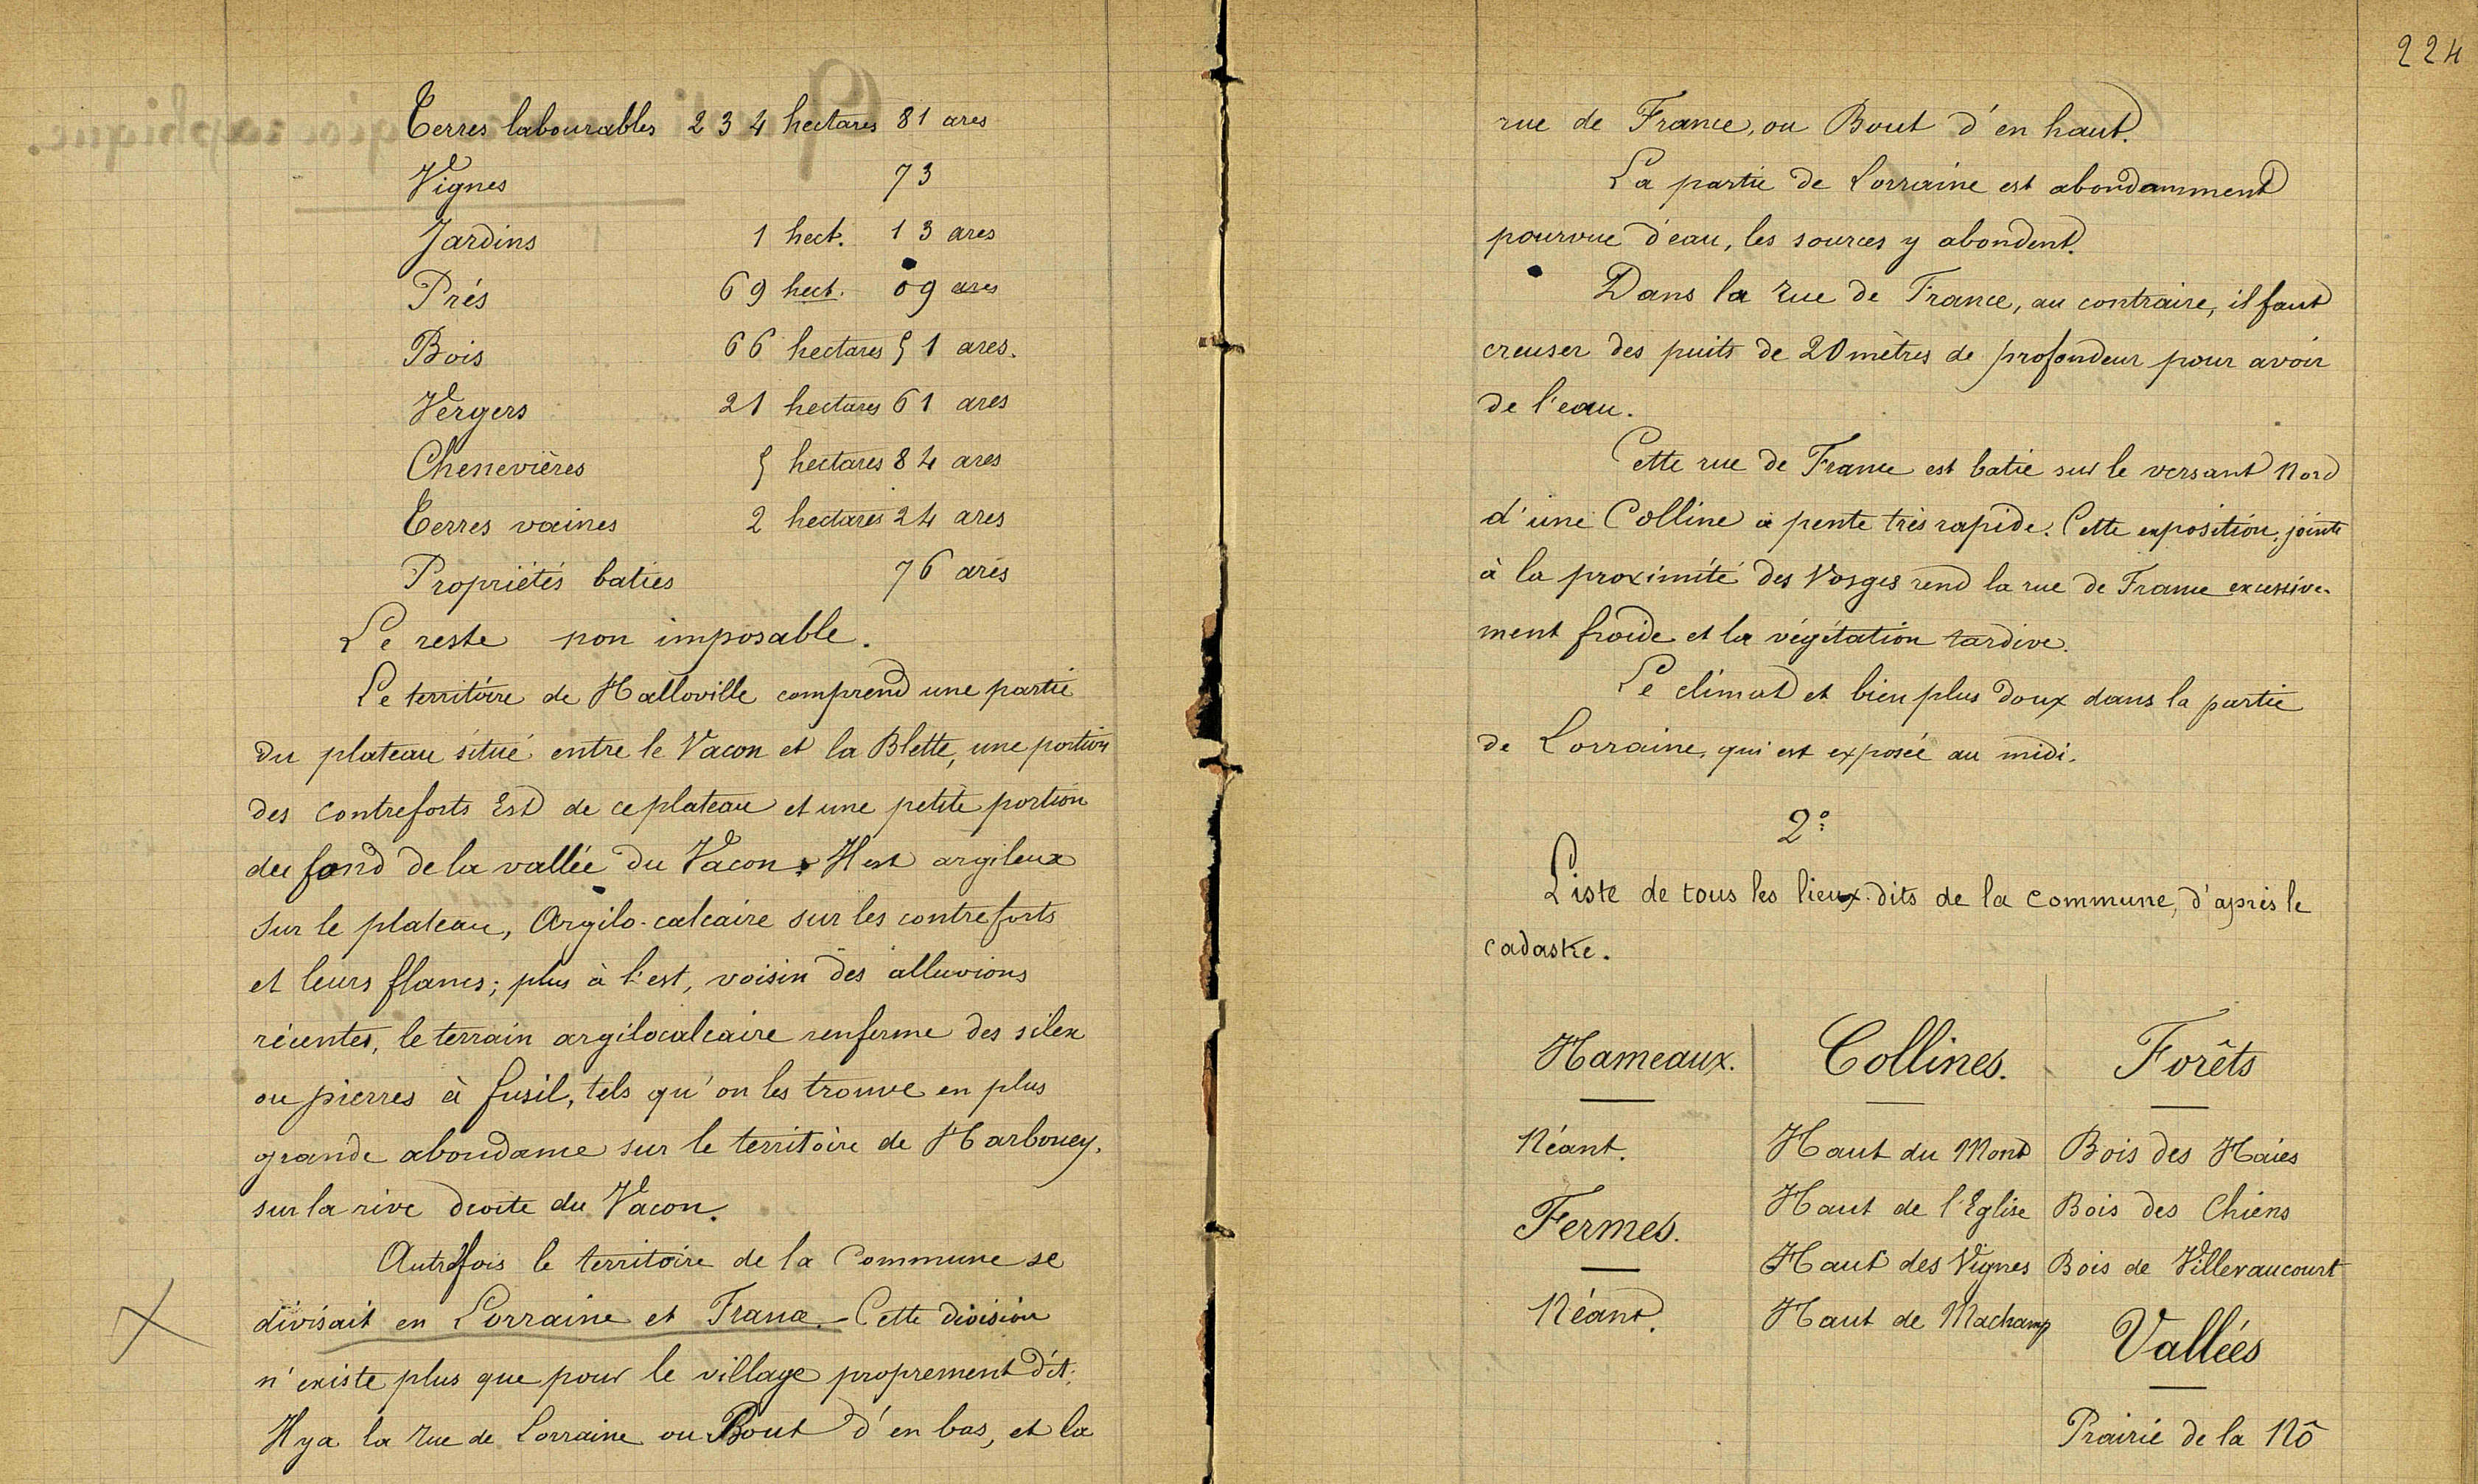 Terres labourables 234 hectares 81 ares
Vignes 73
Jardins 1 hect. 13 ares
Prés 69 hect. 09 ares
Bois 66 hectares 51 ares.
Vergers 21 hectares 61 ares
Chenevières 5 hectares 84 ares
Terres vaines 2 hectares 24 ares
Propriétés baties 76 ares
Le reste non imposable.
Le territoire de Halloville comprend une partie
du plateau situé entre le Vacon et la Blette, une portion
des contreforts Est de ce plateau et une petite portion
du fond de la vallée du Vacon. Il est argileux
sur le plateau, Argilo-calcaire sur les contreforts
et leurs flancs; plus à l'est, voisin des alluvions
récentes, le terrain argilocalcaire renferme des silex
ou pierres à fusil, tels qu'on les trouve en plus
grande abondance sur le territoire de Harbouey,
sur la rive droite du Vacon.
Autrefois le territoire de la Commune se
divisait en Lorraine et France. - Cette division
n'existe plus que pour le village proprement dit.
Il y a la rue de Lorraine ou Bout d'en bas, et la
224
rue de France, ou Bout d'en haut.
La partie de Lorraine est abondamment
pourvue d'eau, les sources y abondent.
Dans la rue de France, au contraire, il faut
creuser des puits de 20 mètres de profondeur pour avoir
de l'eau.
Cette rue de France est batie sur le versant Nord
d'une Colline à pente très rapide. Cette exposition, jointe
à la proximité des Vosges rend la rue de France excessive-
ment froide et la végétation tardive.
Le climat et bien plus doux dans la partie
de Lorraine, qui est exposée au midi.
2°
Liste de tous les lieux-dits de la commune, d'après le
cadastre.
Hameaux. Collines. Forêts
Néant. Haut du Mont Bois des Haies
Fermes. Haut de l'Eglise Bois des Chiens
Haut des Vignes Bois de Villevaucourt
Néant. Haut de Machamp
Vallées
Prairie de la Nô